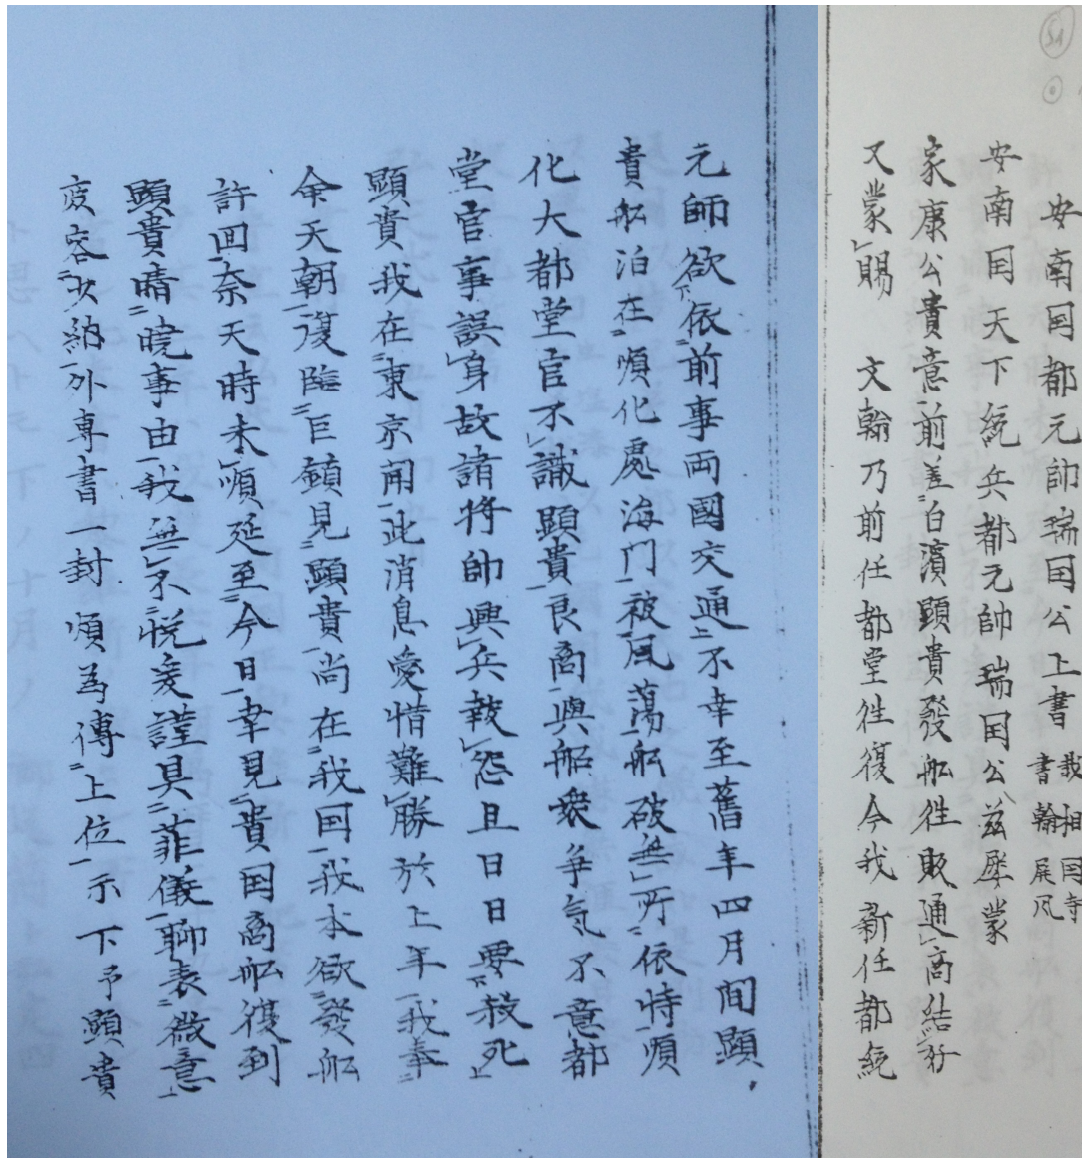 51
安南国都元帥瑞国公上書 裁相国寺書翰屏風
安南国天下統兵都元帥瑞国公兹屡蒙
家康公貴意前差白濱顯貴發舩徃販通商結好
又蒙賜 文翰乃前任都堂徃復今我新任都統
元師欲依前事両國交通不幸至舊年四月間顕
貴舩泊在順化處海门被風蕩舩破無所依恃順
化大都堂官不識顯貴良商與船衆争気不意都
堂官事誤身故諸将帥興兵報怨且日日要殺死
顕貴我在東京闻此消息愛惜難勝於上年我奉
余天朝復臨巨鎮見顕貴尚在我国我本欲發舩
許囬奈天時未順延至今日幸見貴国商舩復到
顕貴晴曉事由我無不悦爰謹具菲儀聊表微意
庶容少納外専書一封順為傳上位示下予顕貴